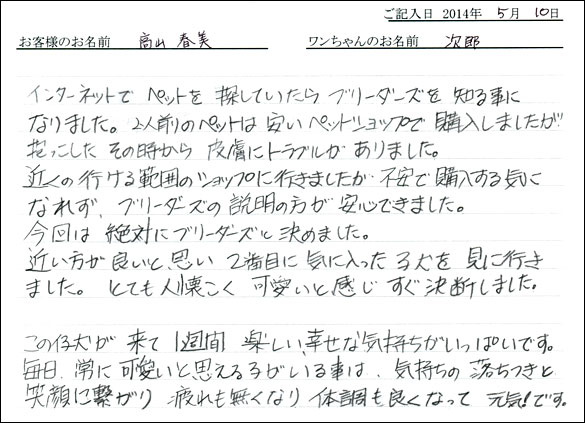 ご記入日 2014年 5月 10日
お客様のお名前 高山 春美 ワンちゃんのお名前 次郎
インターネットで ペットを 探していたら ブリーダーズを 知る事に
なりました。 2人前りのペットは 安いペットショップで 購入しましたが
抱っこした その時から 皮膚にトラブルが ありました。
近くの行ける範囲のショップに行きましたが 不安で購入する気に
なれず、ブリーダーズの 説明の方が 安心できました。
今回は 絶対にブリーダーズと 決めました。
近い方が 良いと、思い 2番目に 気に入った 子犬を 見に行き
ました。 とても 人懐こく 可愛いと感じ すぐ決断しました。
この仔犬が 来て 1週間 楽しい、幸せな気持ちがいっぱいです。
毎日、常に 可愛いと思える子がいる事は、気持ちの 落ちつきと
笑顔に繋がり 疲れも無くなり 体調も良くなって 元気!です。